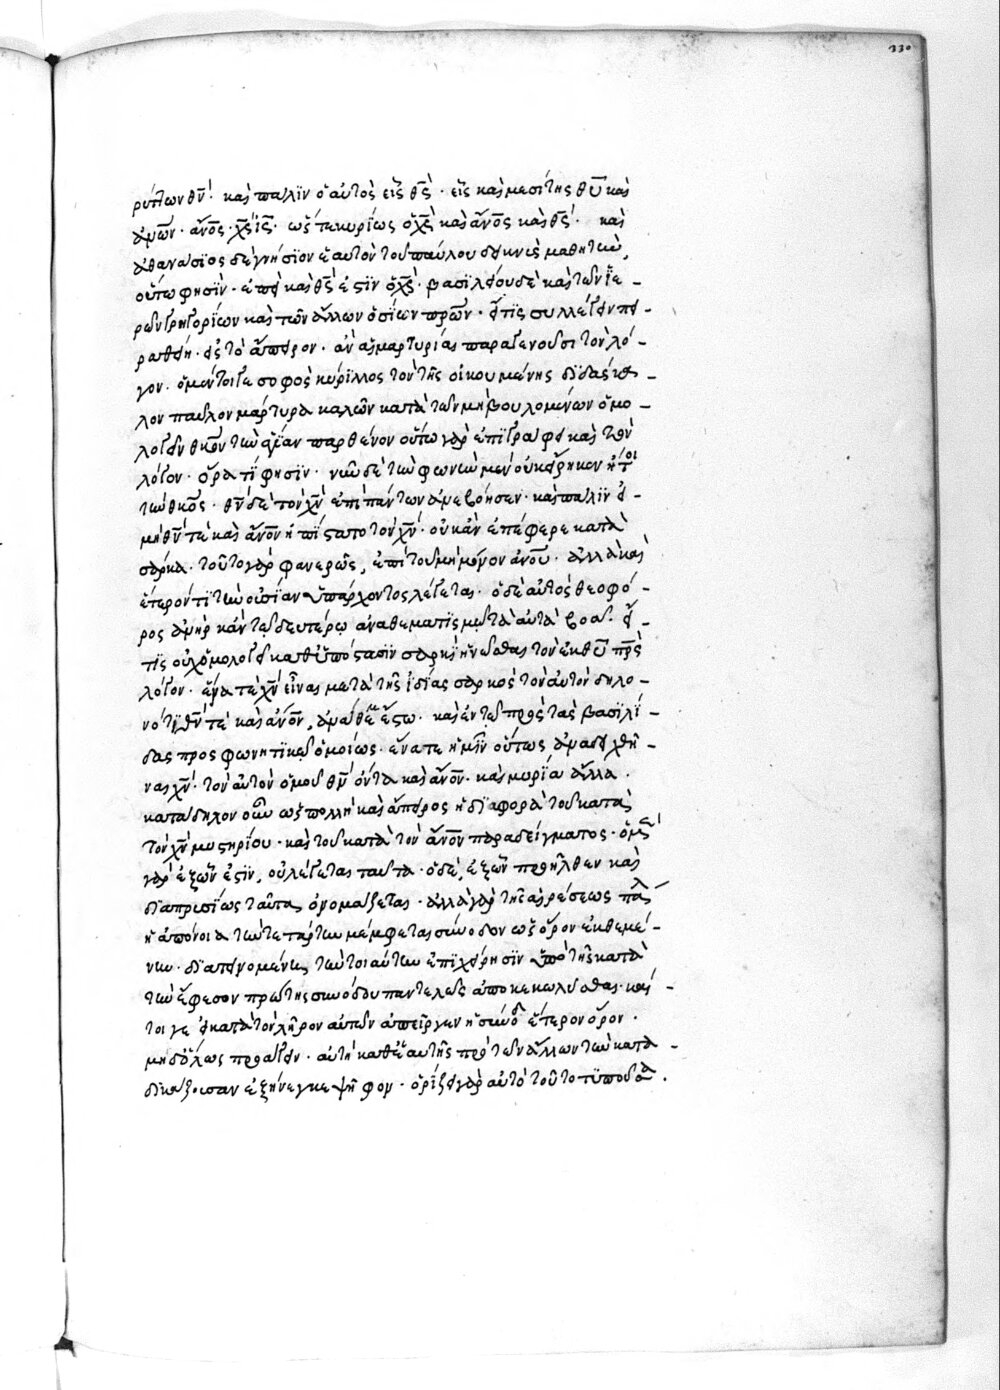 330
ρύττων θν̅· καὶ πάλϊν ὁ αὐτὸς εἷς θς̅· εἷς καὶ μεσίτης θυ̅ καὶ
ἀνων̅· ἄνος̅· χς̅ ις̅· ὡς
κυρίως ὁ χς̅ καὶ ἄνος̅ καὶ θς̅· καὶ
ἀθανάσϊος δὲ γνήσϊον ἑαυτὸν τοῦ παύλου δεικνὺς μαθητὴν,
οὕτω φησὶν· ἐπεὶ καὶ θς̅ ἐστϊν ὁ χς̅· βασϊλείου δὲ καὶ τῶν ἱε-
ρῶν γρηγορίων καὶ τῶν ἄλλων ὁσίων πρων̅· εἴ τϊς συλλέγειν πει-
ραθείη· εἰς τὸ ἄπειρον· ἂν αἱ μαρτυρίαι παραγένουσι τὸν λό-
γον· ὁ μέντοι γε σοφὸς κύρϊλλος τὸν τῆς οἰκουμένης δϊδάσκα-
λον παῦλον μάρτυρα καλῶν κατὰ τῶν μὴ βουλομένων ὁμο-
λογεῖν θκον̅ τὴν ἁγίαν παρθένον οὕτω γὰρ ἐπϊγράφει καὶ τὸν
λόγον· ὅρα τί φησϊν· νῦν δὲ τὴν φωνὴν μὲν οὐκ εἴρηκεν ἤτοι
τὴν θκος̅· θν̅ δὲ τὸν χν̅ ἐπὶ πάντων ἀνεβόησεν· καὶ πάλϊν εἰ-
μὴ θν̅ τὲ καὶ ἄνον̅ ἠπίστατο τὸν χν̅· οὐκ ἂν ἐπέφερε κατὰ
σάρκα· τοῦτο γὰρ φανερῶς, ἐπὶ τοῦ μὴ μόνον ἀνου̅· ἀλλὰ καὶ
ἕτερόν τϊ τὴν οὐσίαν ὑπάρχοντος λέγεται· ὁ δὲ αὐτὸς θεοφό-
ρος ἀνὴρ κἀν τῷ δευτέρῳ ἀναθεματϊσμῷ τὰ αὐτὰ βοᾶ· εἴ-
τϊς οὐχ ὁμολογεῖ καθ ὑπόστασϊν σαρκὶ ἡνῶσθαι τὸν ἐκ θυ̅ πρς̅
λόγον· ἕνα τὲ χν̅ εἶναι μετὰ τῆς ἰδίας σαρκὸς τὸν αὐτὸν δηλο-
νότϊ θν̅ τὲ καὶ ἄνον̅, ἀνάθεμα ἔστω· καὶ ἐν τῷ πρὸς τὰς βασϊλί-
δας προσφωνητϊκῷ ὁμοίως· ἕνα τε ἡμῖν οὕτως ἀναδειχθῆ-
ναι χν̅· τὸν αὐτὸν ὁμοῦ θν̅ ὄντα καὶ ἄνον̅· καὶ μυρία ἄλλα·
κατάδηλον οὖν ὡς πολλὴ καὶ ἄπειρος ἡ δϊαφορὰ τοῦ κατὰ
τὸν χν̅ μυστηρίου· καὶ τοῦ κατὰ τὸν ἄνον̅ παραδείγματος· ὁ μὲν
γὰρ ἐξ ὧν ἐστϊν, οὐ λέγεται ταῦτα· ὁ δὲ, ἐξ ὧν προῆλθεν καὶ
δϊαπρυσίως ταῦτα, ὀνομάζεται· ἀλλὰ γὰρ τῆς αἱρέσεως πάλ
ἡ ἀπόνοια τὴν τετάρτην μέμφεται σύνοδον ὡς ὅρον ἐκθεμέ-
νην· δϊατεινομένη, τὴν τοιαύτην ἐπϊχείρησϊν ὑπὸ τῆς κατὰ
τὴν ἔφεσον πρώτης συνόδου παντελῶς ἀποκεκωλύσθαι· καί-
τοι γε εἰ κατὰ τὸν λῆρον αὐτῶν ἀπεῖργεν ἡ σύνοδ ἕτερον ὅρον·
μηδόλως προάγειν· αὐτὴ καθ ἑαυτῆς πρὸ τῶν ἄλλων τὴν κατα-
δϊκάζουσαν ἐξήνεγκε ψῆφον· ὁρίζει γὰρ αὐτὸ τοῦτο